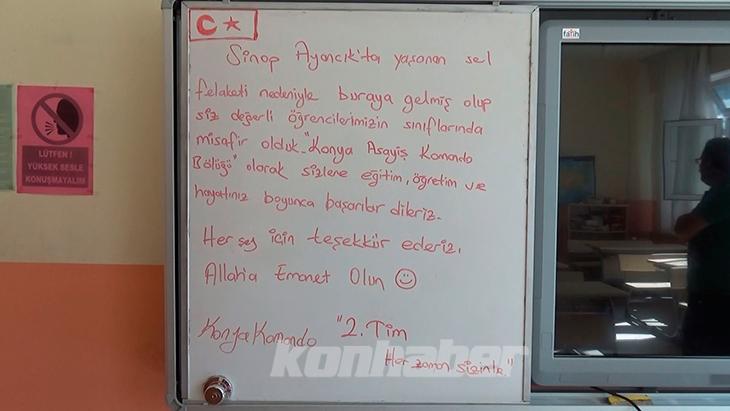 LÜTFEN !
YÜKSEK SESLE
KONUŞMAYALIM
Sinop Ayancık'ta yaşanan sel
felaketi nedeniyle buraya gelmiş olup
siz değerli öğrencilerimizin sınıflarında
misafir olduk. "Konya Asayiş Komando
Bölüğü" olarak sizlere eğitim, öğretim ve
hayatınız boyunca başarılar dileriz.
Her şey için teşekkür ederiz.
Allah'a Emanet Olun
Konya Komando "2. Tim
Her zaman sizinle"
konhaber
fatih